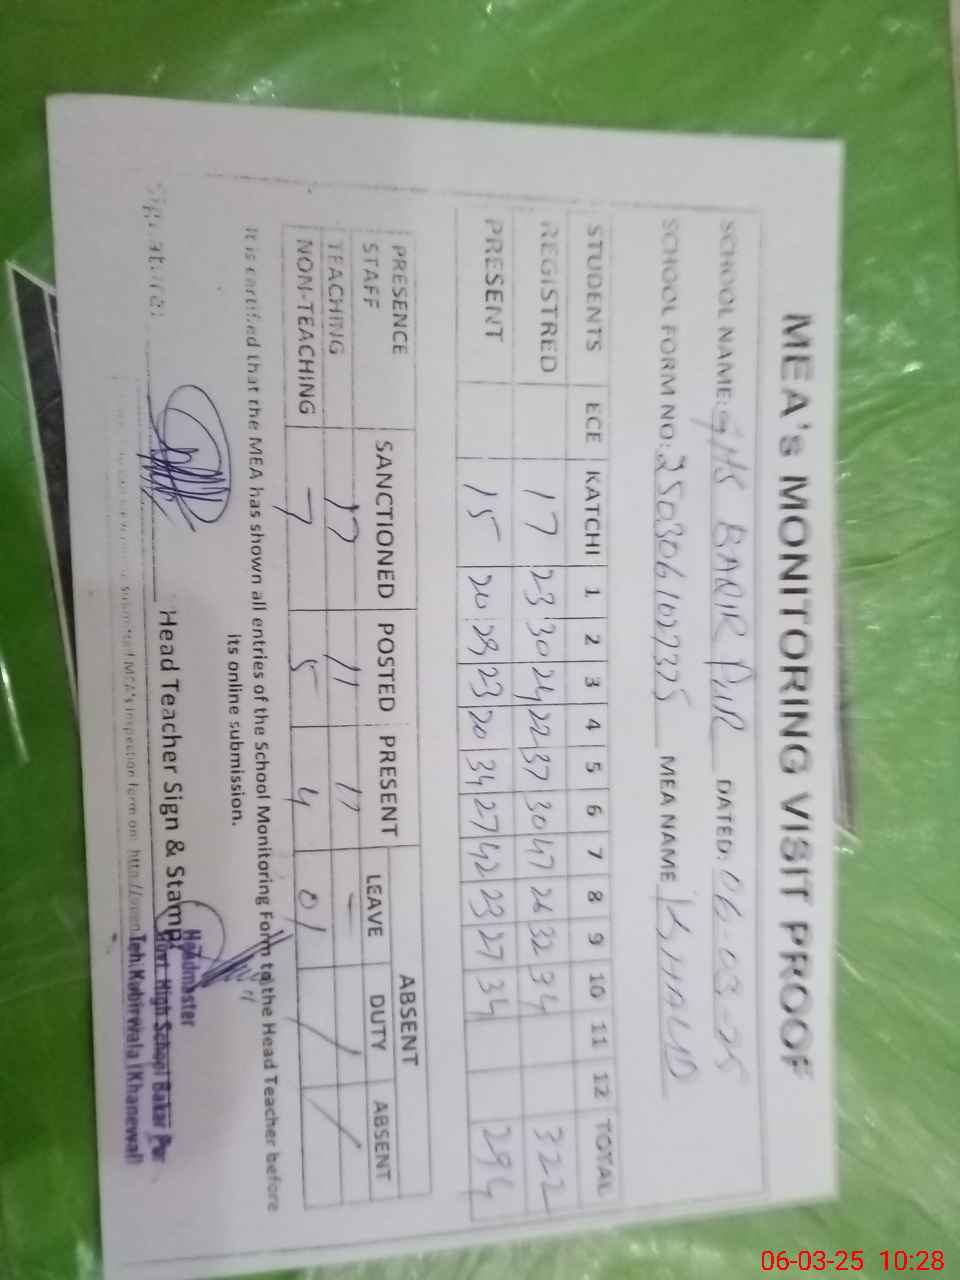 MEA's MONITORING VISIT PROOF
SCHOOL NAME: GHS BAQIR PUR DATED: 06-03-25
SCHOOL FORM NO: MEA NAME KHALID
STUDENTS ECE KATCHI 1 2 3 4 5 6 7 8 9 10 11 12 TOTAL
REGISTRED 17 23 30 24 22 37 30 47 26 32 34 322
PRESENT 15 20 23 20 34 27 42 23 27 34 294
ABSENT
PRESENCE STAFF SANCTIONED POSTED PRESENT LEAVE DUTY ABSENT
TEACHING 17 11 11 -
NON-TEACHING 7 5 4 01
It is certified that the MEA has shown all entries of the School Monitoring Form to the Head Teacher before
its online submission.
Signature: Head Teacher Sign & Stamp:
Headmaster
Govt. High School Bakar Pur
Teh. Kabirwala (Khanewal)
submitted MEA's inspection form on: http://
06-03-25 10:28